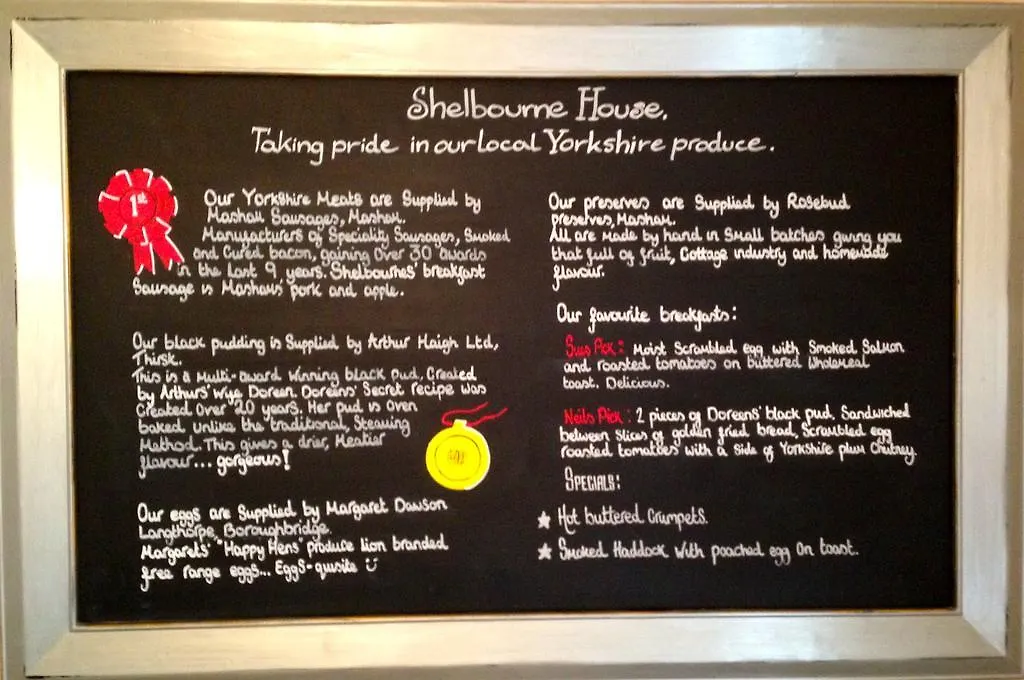 Shelbourne House.
Taking pride in our local Yorkshire produce.
1st
Our Yorkshire Meats are Supplied by
Masham Sausages, Masham.
Manufacturers of Speciality Sausages, Smoked
and Cured bacon, gaining over 30 awards
in the last 9 years. Shelbournes' breakfast
Sausage is Mashams' pork and apple.
Our black pudding is Supplied by Arthur Haigh Ltd,
Thirsk.
This is a Multi-award winning black pud, Created
by Arthurs' wife Doreen. Doreens' Secret recipe was
Created over 20 years. Her pud is oven
baked unlike the traditional, Steaming
Method. This gives a drier, Meatier
flavour... gorgeous!
Our eggs are Supplied by Margaret Dawson
Langthorpe, Boroughbridge.
Margarets' "Happy Hens" produce lion branded
free range eggs... Eggs-quisite
Our preserves are Supplied by Rosebud
preserves, Masham.
All are Made by hand in Small batches giving you
that full of fruit, Cottage industry and homemade
flavour.
Our favourite breakfasts:
Sues Pick: Moist Scrambled egg with Smoked Salmon
and roasted tomatoes on buttered Wholemeal
toast. Delicious.
Neils Pick: 2 pieces of Doreens' black pud, Sandwiched
between Slices of golden fried bread, Scrambled egg
roasted tomatoes with a Side of Yorkshire plum Chutney.
SPECIALS:
Hot buttered Crumpets.
Smoked Haddock with poached egg on toast.